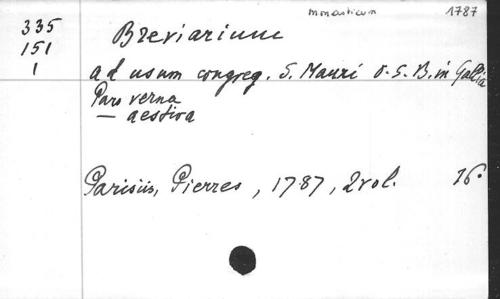 monasticum 1787
335 Breviarium
151
1 ad usum congreg. S. Mauri O.S.B. in Gallia
Pars verna
— aestiva
Parisiis, Pierres, 1787, 2 vol. 16°